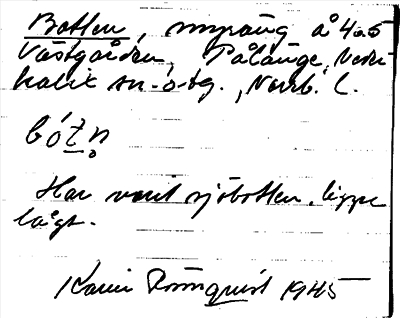 Botten, myräng å 4 o 5
Västgården, Pålänge, Neder-
kalix sn. o. tg., Norrb. l.
bót̠n̥
Har varit sjöbotten, ligger
lågt.
Karin Rönnquist 1945